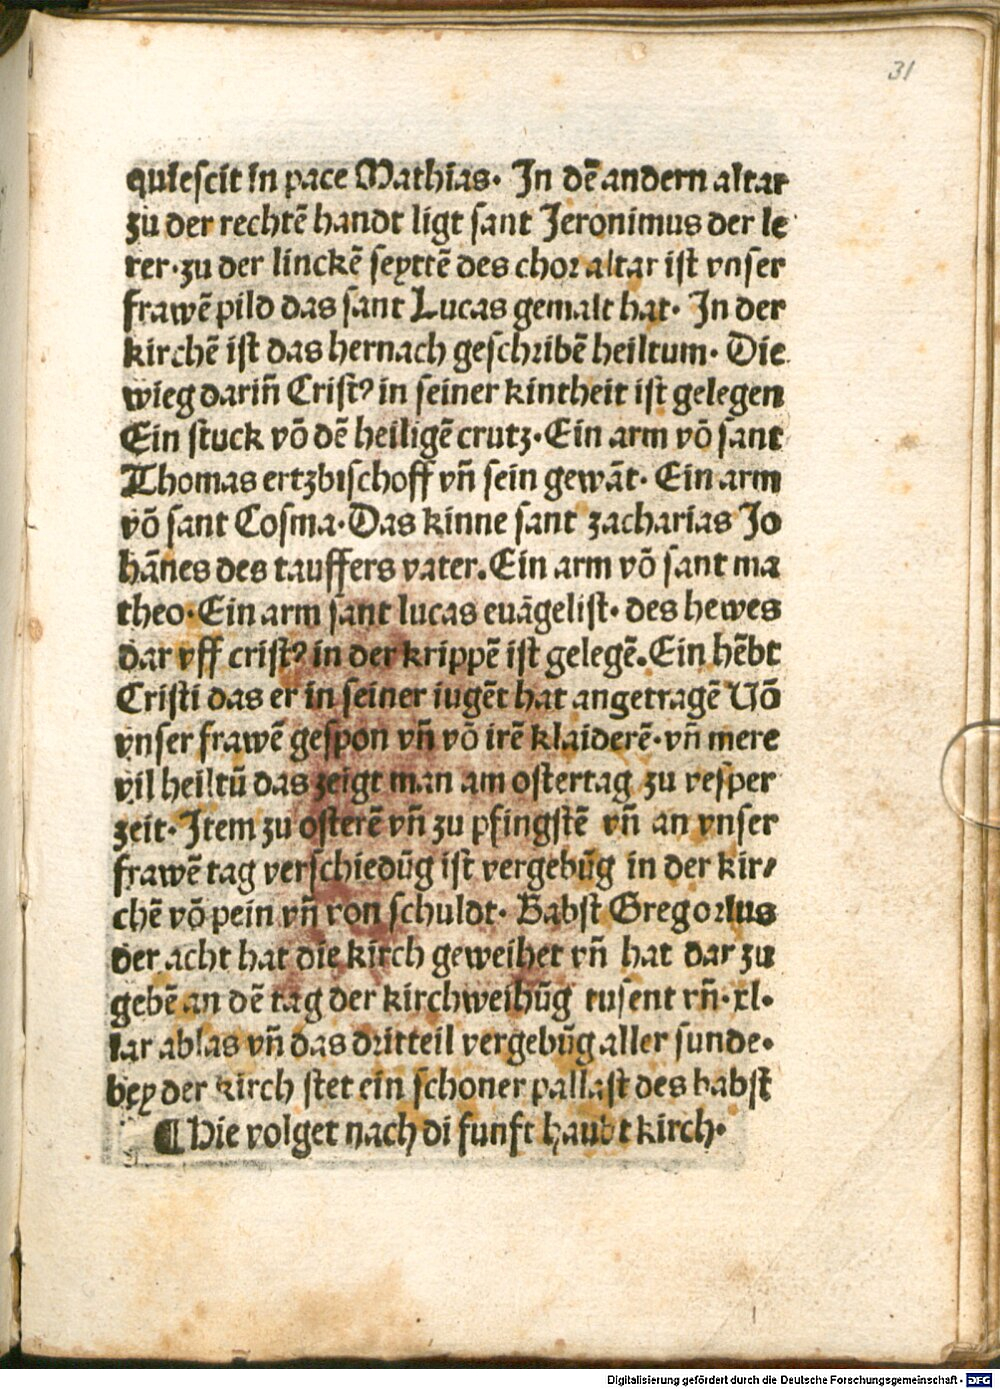 31
quiescit in pace Mathias. In dē andern altar
zu der rechtē handt ligt sant Jeronimus der le
rer. zu der linckē seyttē des chor altar ist vnser
frawē pild das sant Lucas gemalt hat. In der
kirchē ist das hernach geschribē heiltum. Die
wieg dariñ Crist⁹ in seiner kintheit ist gelegen
Ein stuck vō dē heiligē crutz. Ein arm vō sant
Thomas ertzbischoff vñ sein gewāt. Ein arm
vō sant Cosma. Das kinne sant zacharias Jo
hānes des tauffers vater. Ein arm vō sant ma
theo. Ein arm sant lucas euāgelist. des hewes
dar vff crist⁹ in der krippē ist gelegē. Ein hēbt
Cristi das er in seiner iugēt hat angetragē Vō
vnser frawē gespon vñ vō irē klaiderē. vñ mere
vil heiltū das zeigt man am ostertag zu vesper
zeit. Item zu osterē vñ zu pfingstē vñ an vnser
frawē tag verschiedūg ist vergebūg in der kir⸗
chē vō pein vñ von schuldt. Babst Gregorius
der acht hat die kirch geweihet vñ hat dar zu
gebē an dē tag der kirchweihūg tusent vñ. xl.
iar ablas vñ das dritteil vergebūg aller sunde.
bey der kirch stet ein schoner pallast des babst
¶ Hie volget nach di funft haubt kirch.
Digitalisierung gefördert durch die Deutsche Forschungsgemeinschaft - DFG